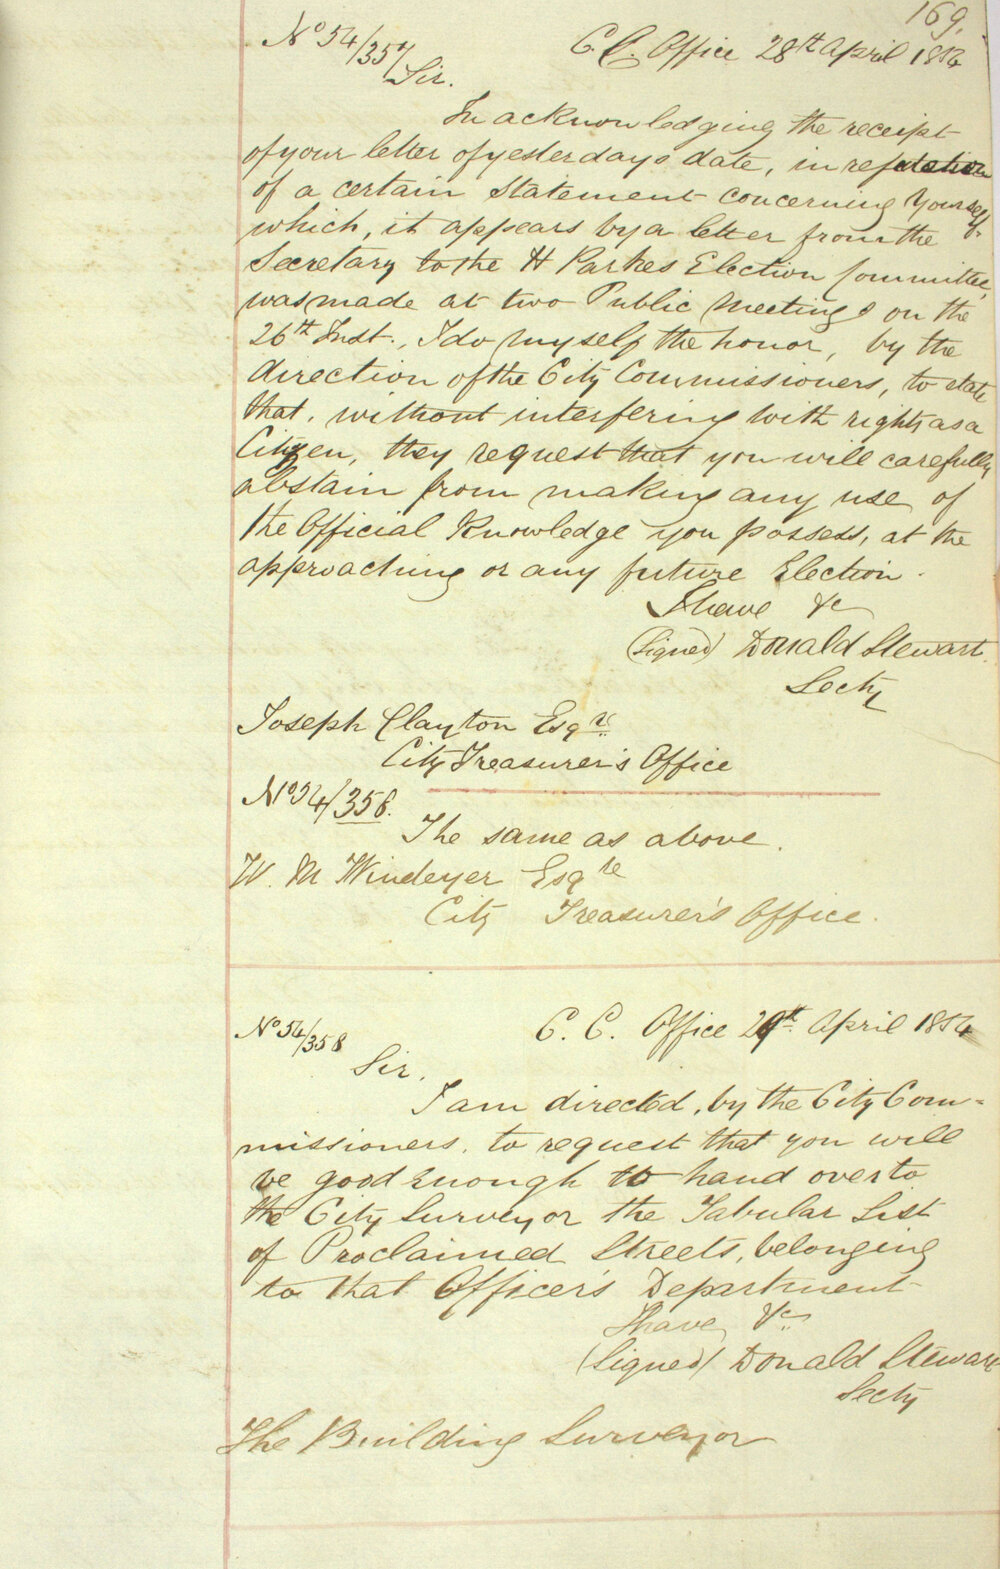 169.
No 54/357 C. C. Office 28th April 1854
Sir.
In acknowledging the receipt
of your letter of yesterdays date, in refutation
of a certain statement concerning yourself,
which, it appears by a letter from the
Secretary to the H Parkes Election Committee,
was made at two Public Meetings on the
26th Inst., I do myself the honor, by the
direction of the City Commissioners, to state
that, without interfering with rights as a
Citizen, they request that you will carefully
abstain from making any use of
the Official Knowledge you possess, at the
approaching or any future Election.
I have &c
(Signed) Donald Stewart.
Secty
Joseph Clayton Esqre
City Treasurer's Office
No 54/358.
The same as above.
W. M Windeyer Esqre
City Treasurer's Office.
No 54/358 C. C. Office 29th April 1854
Sir.
I am directed, by the City Com-
missioners, to request that you will
be good enough to hand over to
the City Surveyor the Tabular List
of Proclaimed Streets, belonging
to that Officer's Department
I have &c
(Signed) Donald Stewart
Secty
The Building Surveyor